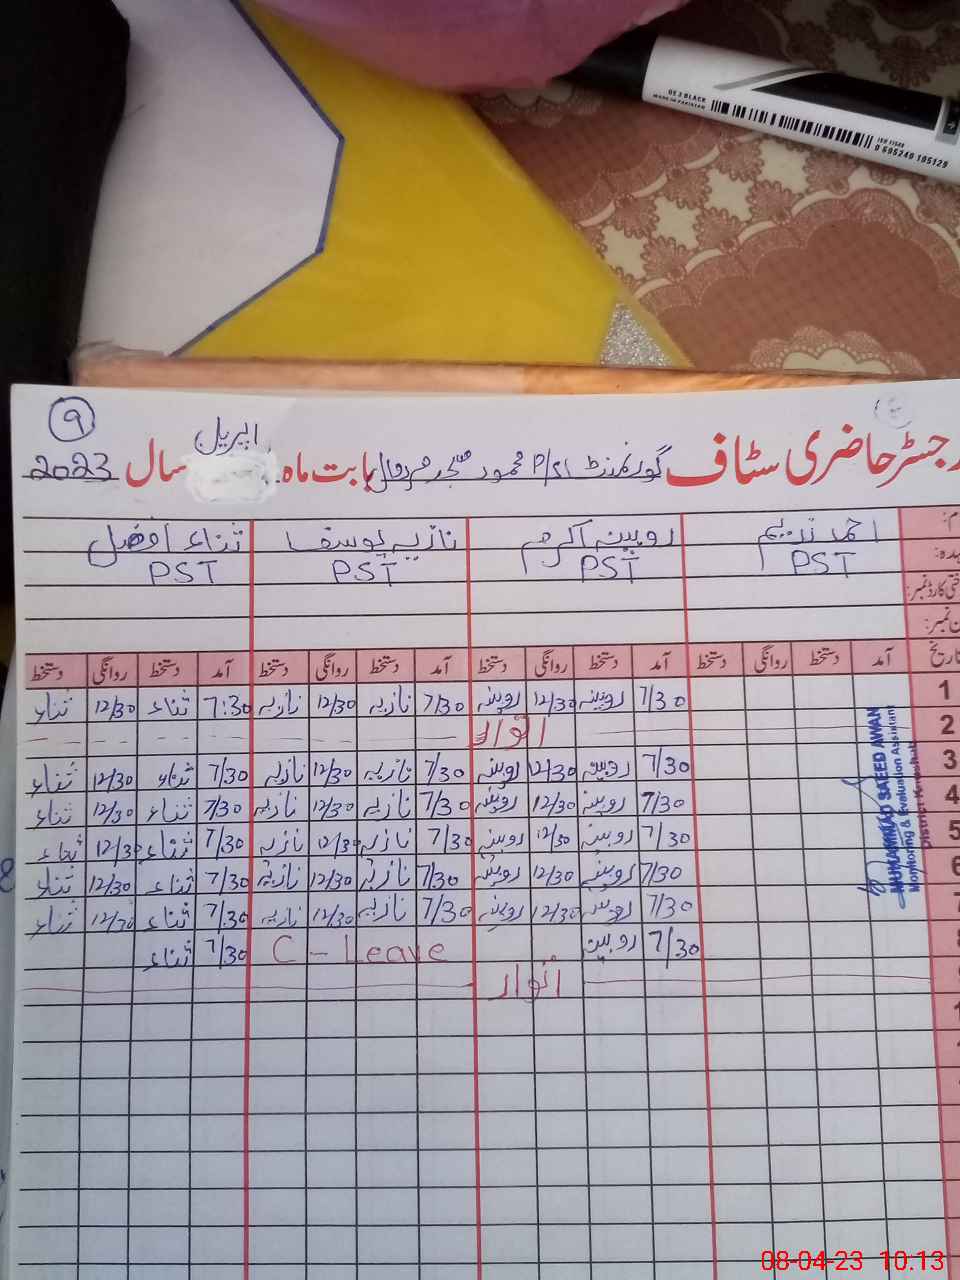 OE 2 BLACK
MADE IN PAKISTAN
ISO 11540
9 695240 105129
۹
اپریل
رجسٹر حاضری سٹاف گورنمنٹ P/S محمود بابت ماہ سال 2023
نام: احمد ندیم روبینہ اکرم نازیہ یوسف ثناء افضل
عہدہ: PST PST PST PST
شناختی کارڈ نمبر:
فون نمبر:
تاریخ آمد دستخط روانگی دستخط آمد دستخط روانگی دستخط آمد دستخط روانگی دستخط آمد دستخط روانگی دستخط
1 7/30 روبینہ 12/30 روبینہ 7/30 نازیہ 12/30 نازیہ 7:30 ثناء 12/30 ثناء
2 اتوار
3 7/30 روبینہ 12/30 روبینہ 7/30 نازیہ 12/30 نازیہ 7/30 ثناء 12/30 ثناء
4 7/30 روبینہ 12/30 روبینہ 7/30 نازیہ 12/30 نازیہ 7/30 ثناء 12/30 ثناء
5 7/30 روبینہ 12/30 روبینہ 7/30 نازیہ 12/30 نازیہ 7/30 ثناء 12/30 ثناء
6 7/30 روبینہ 12/30 روبینہ 7/30 نازیہ 12/30 نازیہ 7/30 ثناء 12/30 ثناء
7 7/30 روبینہ 12/30 روبینہ 7/30 نازیہ 12/30 نازیہ 7/30 ثناء 12/30 ثناء
8 7/30 روبین C - Leave 7/30 ثناء
9 اتوار
MUHAMMAD SAEED AWAN
Monitoring & Evaluation Assistant
District
08-04-23 10.13